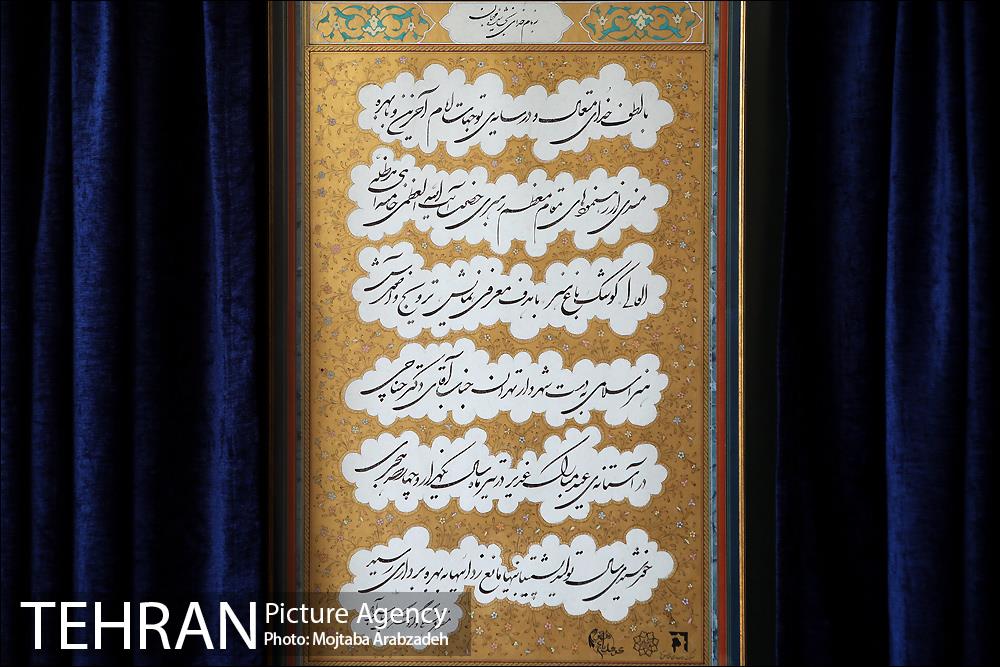 به نام خدای
با لطف خدای متعال و در سایه‌ی توجهات امام آخرین و با بهره
مندی از رهنمودهای مقام معظم رهبری حضرت آیت الله العظمی خامنه‌ای مدظله
کوشک باغ هنر با هدف معرفی نمایش ترویج و آموزش
هنر اسلامی به دست شهردار تهران جناب آقای دکتر حناچی
در آستانه‌ی عید مبارک غدیر در تیر ماه سال یکهزار و چهارصد هجری
شمسی سال تولید پشتیبانیها مانع زداییها به بهره برداری رسید
TEHRAN Picture Agency
Photo: Mojtaba Arabzadeh